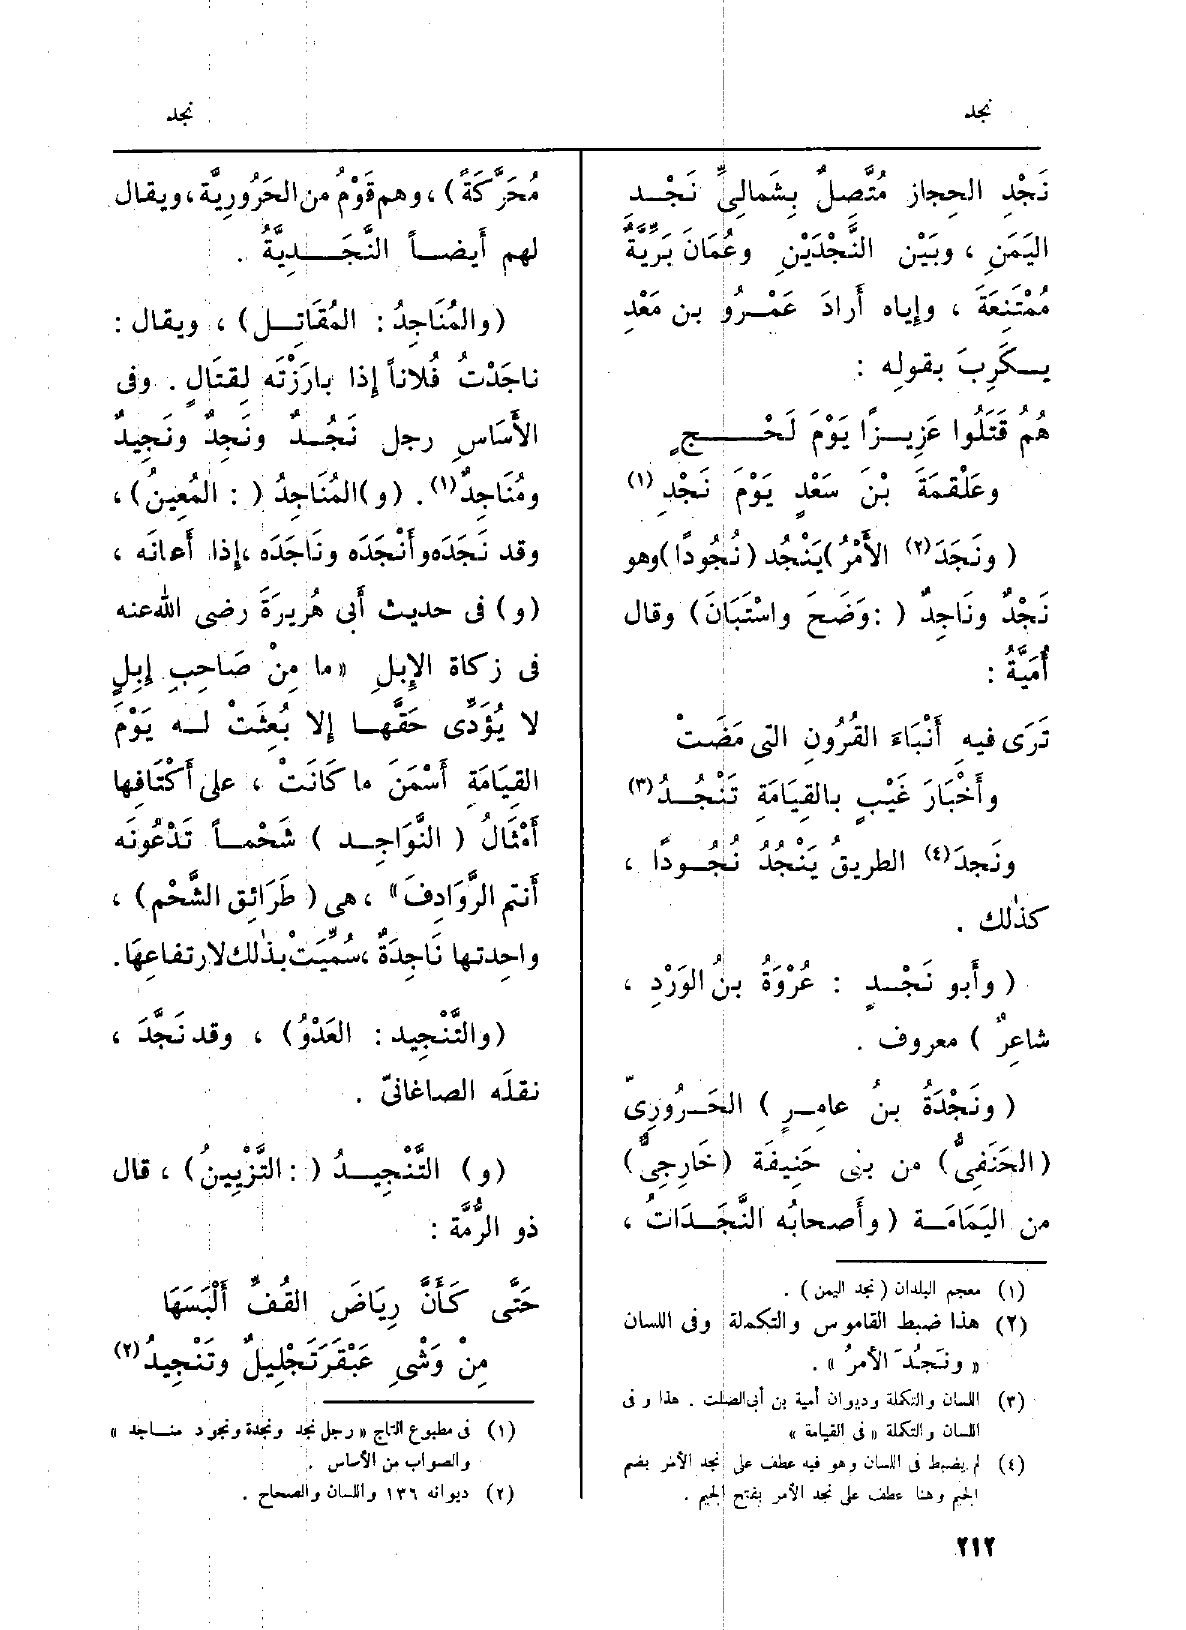 نجد
نجد
نَجْدِ الحِجاز مُتَّصِلٌ بِشَمالِىِّ نَجْدِ
اليَمَنِ ، وبَيْن النَّجْدَيْنِ وعُمَانَ بَرِّيَّةٌ
مُمْتَنِعَةَ ، وإِياه أَرادَ عَمْرُو بن مَعْدِ
يكَرِبَ بقوله :
هُمُ قَتَلُوا عَزِيزًا يَوْمَ لَحْجٍ
وعَلْقمَةَ بْنَ سَعْدٍ يَوْمَ نَجْدِ (١)
( ونَجَدَ (٢) الأَمْرُ) يَنْجُد (نُجُودًا) وهو
نَجْدٌ ونَاجِدٌ ( : وَضَحَ واسْتَبَانَ) وقال
أُمَيَّةُ :
تَرَى فيهِ أَنْبَاءَ القُرُونِ التى مَضَتْ
وأَخْبَارَ غَيْبٍ بالقِيَامَةِ تَنْجُدُ (٣)
ونَجدَ (٤) الطريقُ يَنْجُدُ نُجُودًا ،
كذٰلك .
( وأَبو نَجْدٍ : عُرْوَةُ بنُ الوَرْدِ ،
شاعِرٌ ) معروف .
( ونَجْدَةُ بنُ عامِرٍ ) الحَرُورِىّ
(الحَنَفِىُّ) من بنى حَنِيفَة (خَارِجِىٌّ)
من اليَمَامَة ( وأَصحابُه النَّجَدَاتُ ،
(١) معجم البلدان ( نجد اليمن ) .
(٢) هذا ضبط القاموس والتكملة وفى اللسان
« ونَجُدَ الأَمرُ » .
(٣) اللسان والتكملة وديوان أمية بن أبى الصلت . هذا و فى
اللسان والتكملة « فى القيامة »
(٤) لم يضبط فى اللسان وهو فيه عطف على نجد الأمر بضم
الجيم وهنا عطف على نجد الأمر بفتح الجيم .
مُحَرَّكَةً ) ، وهم قَوْمٌ من الحَرُورِيَّة ، ويقال
لهم أَيضاً النَّجَدِيَّةُ .
(والمُنَاجِدُ : المُقَاتِل) ، ويقال :
ناجَدْتُ فُلاناً إِذا بارَزْتَه لِقتَالٍ . وفى
الأَسَاسِ رجل نَجُدٌ ونَجِدٌ ونَجِيدٌ
ومُنَاجِدٌ (١) . (و) المُنَاجِدُ ( : المُعِينُ) ،
وقد نَجَدَه وأَنْجَدَه ونَاجَدَه ، إِذا أَعانَه ،
(و) فى حديث أَبى هُرِيرَةَ رضى الله عنه
فى زكاة الإِبلِ « ما مِنْ صَاحِبِ إِبِلٍ
لا يُؤَدِّى حَقَّها إِلا بُعثَتْ له يَوْمَ
القِيَامَةِ أَسْمَنَ ما كَانَتْ ، على أَكْتَافِها
أَمْثَالُ ( النَّوَاجِد ) شَحْماً تَدْعُونَه
أَنتم الرَّوَادِفَ » ، هى ( طَرَائق الشَّحْمِ ) ،
واحدتها نَاجِدَةٌ ، سُمِّيَتْ بذٰلك لارتفاعِهَا .
(والتَّنْجِيد : العَدْوُ) ، وقد نَجَّدَ ،
نقلَه الصاغانىّ .
(و) التَّنْجِيدُ ( : التَّزْيِينُ) ، قال
ذو الرُّمَّة :
حَتَّى كَأَنَّ رِيَاضَ القُفِّ أَلْبَسَهَا
مِنْ وَشْىِ عَبْقَرَ تَجْلِيلٌ وتَنْجِيدُ (٢)
(١) فى مطبوع التاج « رجل نجد ونجدة ونجود مناجد »
والصواب من الأساس .
(٢) ديوانه ١٣٦ واللسان والصحاح .
٢١٢